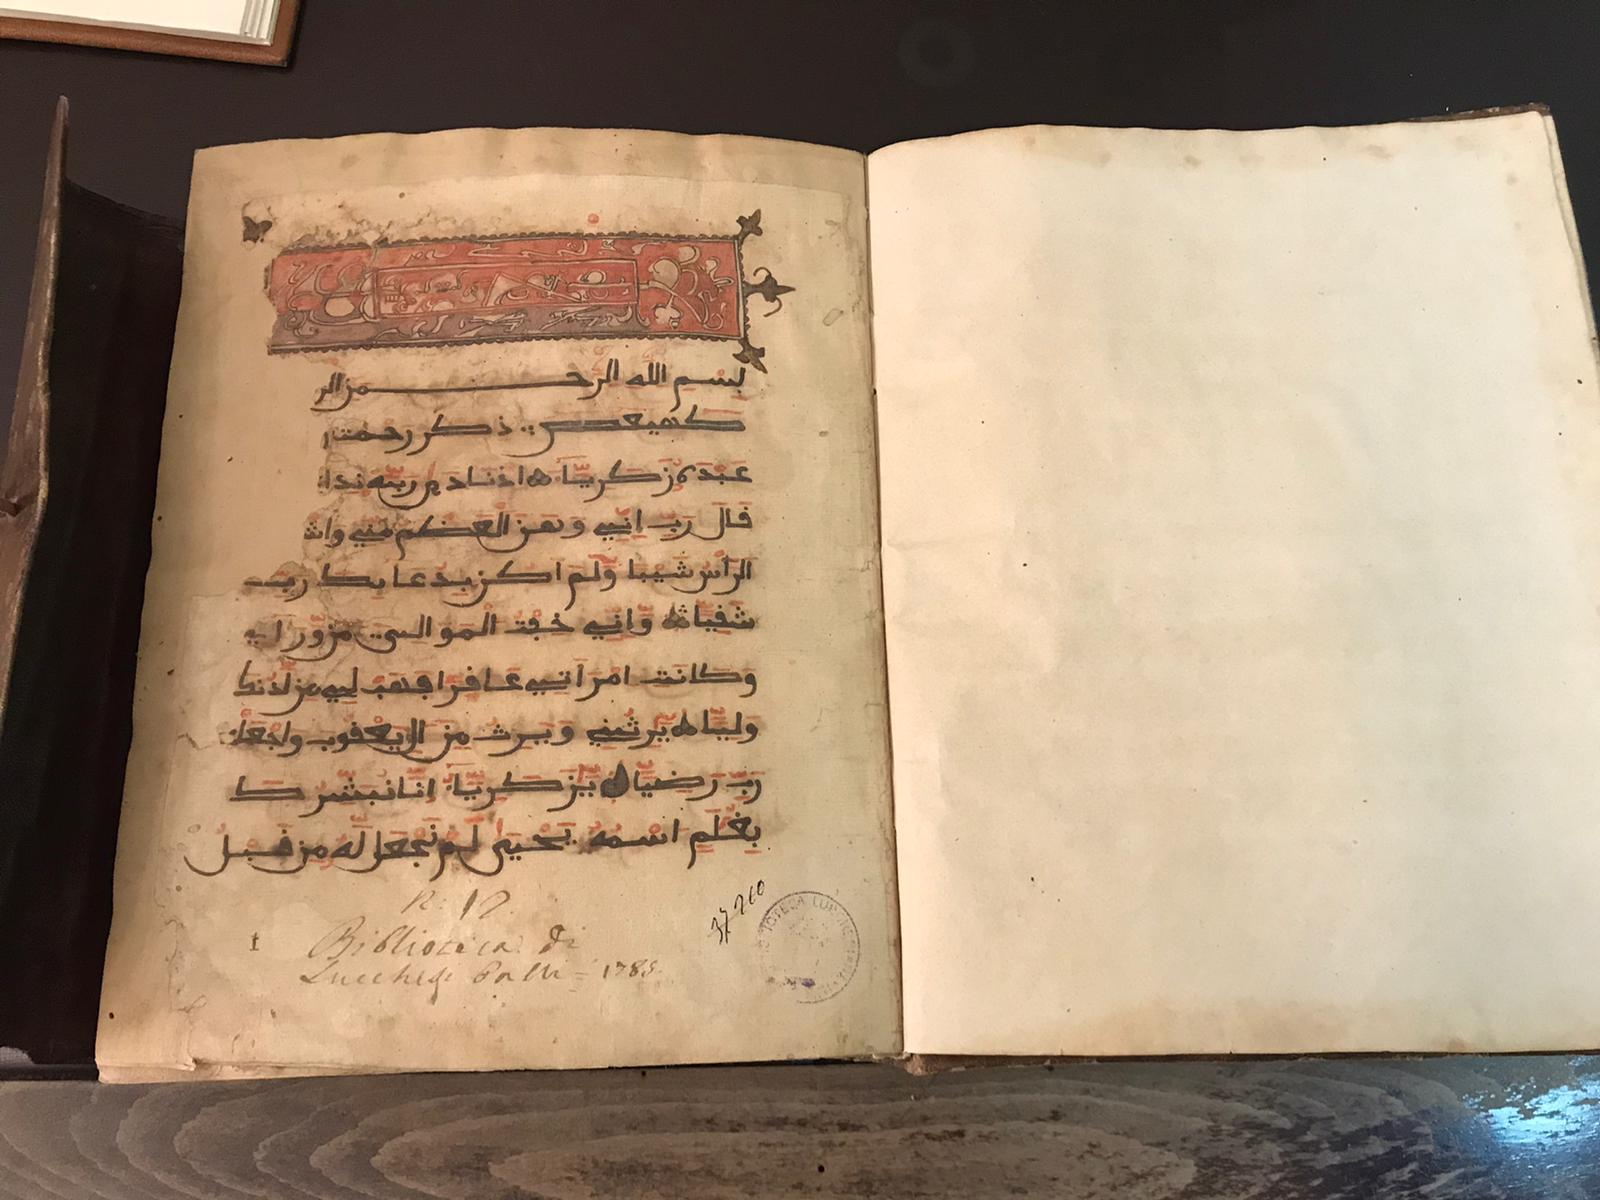 بسم الله الرحمن الر
كهيعص ذكر رحمت
عبده زكريا اذ نادى ربه ندا
قال رب اني وهن العظم مني واش
الرأس شيبا ولم اكن بدعايك رب
شقيا واني خفت الموالي من وراي
وكانت امراتي عاقرا فهب لي من لدنك
وليا يرثني ويرث من ال يعقوب واجعله
رب رضيا يزكريا انا نبشرك
بغلم اسمه يحيى لم نجعل له من قبل
37260
Biblioteca di
Lucchesi Palli = 1785.
BIBLIOTECA LUCCHESIANA